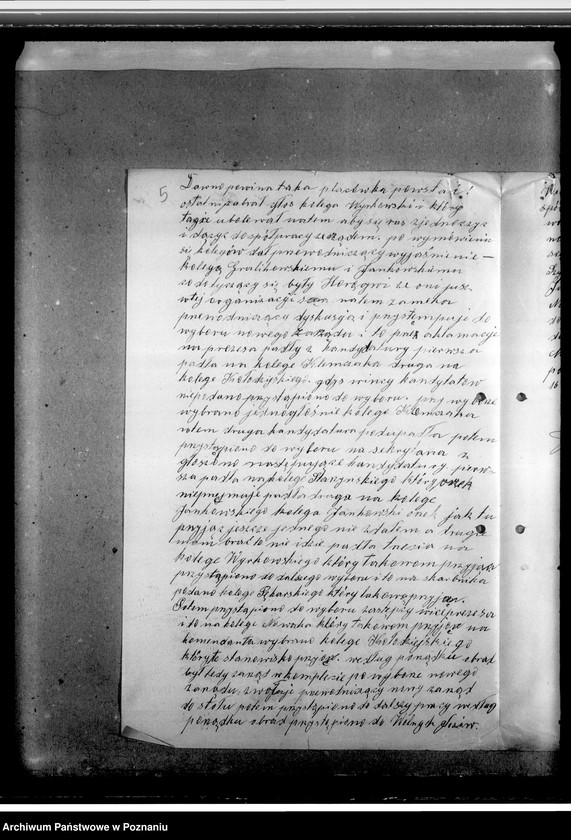 5
Dawno powina taka placówka powstać!
ostatni zabrał głos kolega Wyrkowski i który
także ubolewał natem aby się raz zjednoczyć
i dążyć do spół pracy zarządem. po wymówieniu
się kolegów dał przewodniczący wyjaśnienie —
kolegą Gralikowskiemu i Jankowskiemu
co dotyczący się były że ono jusz
wtej organizacji są natem zamcka
przewodniczący dyskusją i przystempuje do
wyboru nowego zarządu. i to przez aklamacje
na prezesa padły 2 kandydatury pierwsza
padła na kolege Klemczaka druga na
kolege gdyż wincy kandytatów
niepodano przystąpiono do wyboru. przy wyborze
wybrano jednogłośnie kolege Klemczaka
natem druga kandydatura podupadła potem
przystąpiono do wyboru na sekrytarza z
głoszono następujące kandydatury pierw-
sza padła na kolege Starzynskiego który
nieprzyjmoje padła druga na kolege
Jankowskiego kolega Jankowski jak tu
przyjąć jeszcze jednego nie zdałem a drugie
mam brać to nie idzie padła trzecia na
kolege Wyrkowskiego który takowem przyjął
przystąpiono do dalszego wyboru i to na skarbnika
podano kolege Pękarskiego który takowe przyjął.
Potem przystąpiono do wyboru zastępcy wiceprezesa
i to na kolege Nowaka który takowem przyjął na
komendanta wybrano kolege
któryte stanowisko przyjął. według porządku obrad
był tedy zarząd w komplecie po wyborze nowego
zarządu, zwołuje przewodniczący nowy zarząd
do stołu potem przystąpiono do dalszy pracy według
porządku obrad przystąpiono do Wolnych głosów.
Archiwum Państwowe w Poznaniu